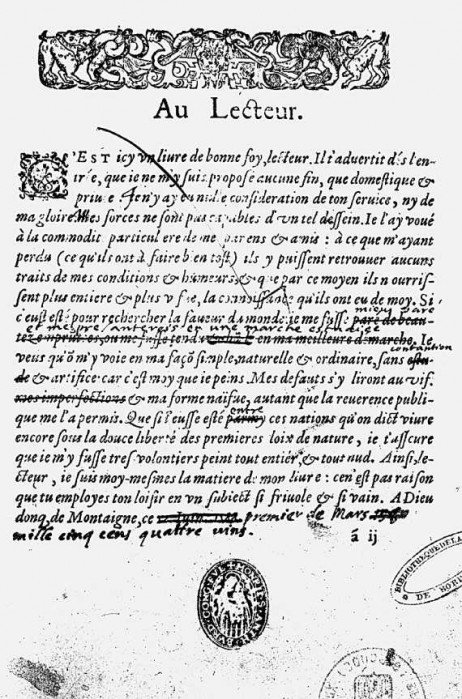 Au Lecteur.
C'EST icy vn liure de bonne foy, lecteur. Il t'aduertit dés l'en-
trée, que ie ne m'y suis proposé aucune fin, que domestique &
priuée. Ie n'y ay eu nulle consideration de ton seruice, ny de
ma gloire. Mes forces ne sont pas capables d'vn tel dessein. Ie l'ay voué
à la commodité particuliere de mes parens & amis : à ce que m'ayant
perdu (ce qu'ils ont à faire bien tost) ils y puissent retrouuer aucuns
traits de mes conditions & humeurs, & que par ce moyen ils nourris-
sent plus entiere & plus vifue, la connoissance qu'ils ont eu de moy. Si
mieux paré
c'eust esté pour rechercher la faueur du monde: ie me fusse paré de beau-
et
en ma meilleure démarche. Ie
veus qu'on m'y voie en ma façõ simple, naturelle & ordinaire, sans
contantion
& artifice: car c'est moy que ie peins. Mes defauts s'y liront au vif.
mes imperfections & ma forme naïfue, autant que la reuerence publi-
que me l'a permis. Que si i'eusse esté parmy ces nations qu'on dict viure
entre
encore sous la douce liberté des premieres loix de nature, ie t'asseure
que ie m'y fusse tres volontiers peint tout entier, & tout nud. Ainsi, le-
cteur, ie suis moy-mesmes la matiere de mon liure : ce n'est pas raison
que tu employes ton loisir en vn subiect si friuole & si vain. A Dieu
donq, de Montaigne, ce premier de Mars
mille cinq cens quattre vins.
ã ij
BIBLIOTHEQUE DE LA
DE BOR